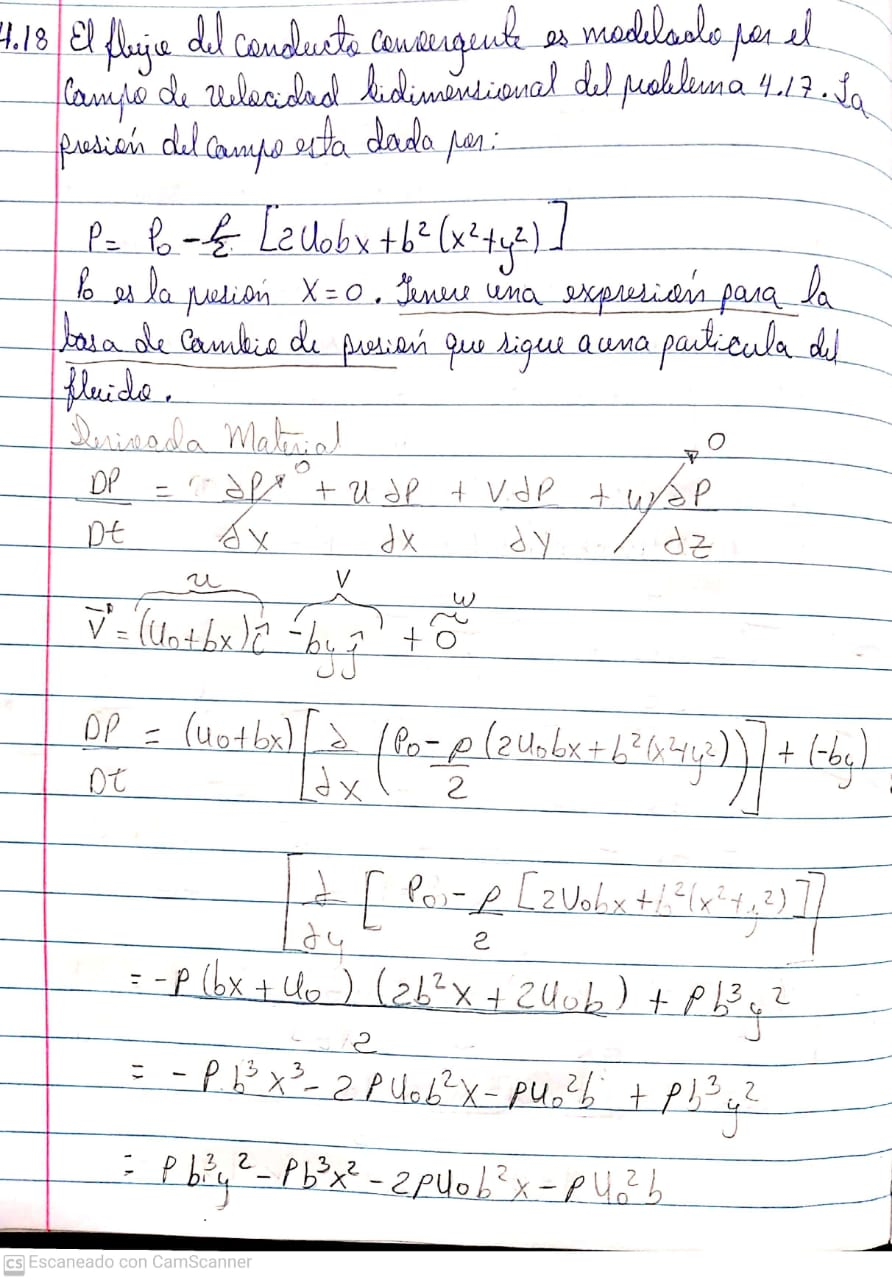 4.18 El flujo del conducto convergente es modelado por el
Campo de velocidad bidimensional del problema 4.17. La
presión del Campo esta dada por:
P = P₀ - ρ/2 [2U₀bx + b²(x²+y²)]
P₀ es la presión X=0. Genere una expresión para la
tasa de Cambio de presión que sigue a una particula del
fluido.
Derivada Material
DP/Dt = ∂P/∂x ↗0 + u ∂P/∂x + V ∂P/∂y + w ∂P/∂z ↗0
u V w
V⃗ = (U₀+bx)î - byĵ + 0
DP/Dt = (u₀+bx) [∂/∂x (P₀ - ρ/2 (2U₀bx + b²(x²+y²)))] + (-by)
[∂/∂y [P₀ - ρ/2 [2U₀bx + b²(x²+y²)]]
= -ρ(bx + U₀)(2b²x + 2U₀b)/2 + ρb³y²
= -ρb³x³ - 2ρU₀b²x - ρU₀²b + ρb³y²
= ρb³y² - ρb³x² - 2ρU₀b²x - ρU₀²b
CS Escaneado con CamScanner